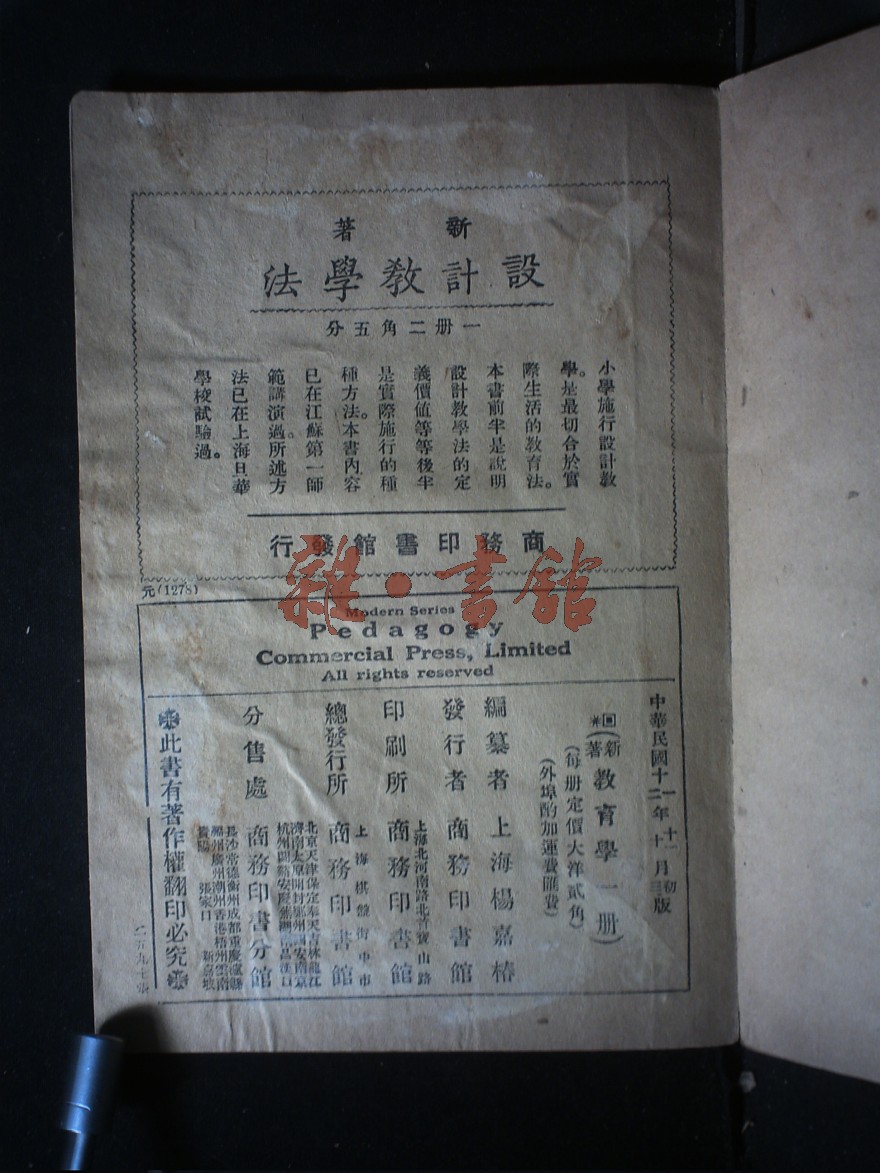 新著
設計教學法
一册二角五分
小學施行設計教
學。是最切合於實
際生活的教育法。
本書前半是說明
設計教學法的定
義價値等等後半
是實際施行的種
種方法。本書內容
已在江蘇第一師
範講演過。所述方
法已在上海旦華
學校試驗過。
商務印書館發行
元(1278)
雜·書館
Modern Series
Pedagogy
Commercial Press, Limited
All rights reserved
中華民國十一年十一月初版
二 十 三
(新著)教育學一册
(每册定價大洋貳角)
(外埠酌加運費匯費)
編纂者 上海楊嘉椿
發行者 商務印書館
印刷所 上海北河南路北首寶山路 商務印書館
總發行所 上海棋盤街中市 商務印書館
分售處 商務印書分館
北京天津保定奉天吉林龍江
濟南太原開封鄭州西安南京
杭州蘭谿安慶蕪湖南昌漢口
長沙常德衡州成都重慶瀘縣
福州廣州潮州香港梧州雲南
貴陽 張家口 新嘉坡
此書有著作權翻印必究
二五九七張